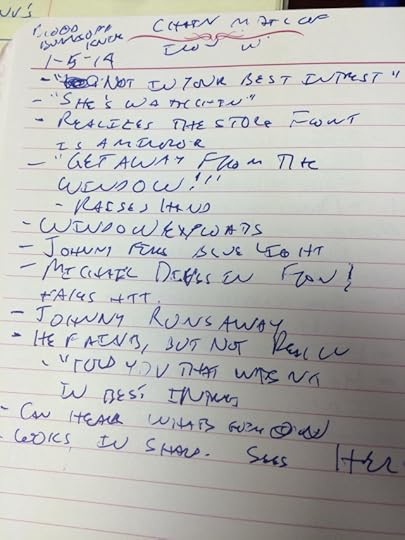 BLOOD
CHAIN MAIL OF
1-5-14
- "NOT IN YOUR BEST INTREST"
- "SHE'S WATCHIN"
- REALIZES THE STORE FRONT
IS A MIRROR
- "GET AWAY FROM THE
WINDOW!!!
- RAISES HAND
- WINDOW EXPLOADS
- JOHNNY FIRES BLUE LIGHT
- MICHAEL DIVES IN FRONT
TAKES HIT.
- JOHNNY RUNS AWAY
- HE FAINTS, BUT NOT REALLY
- "TOLD YOU THAT WAS NT
IN BEST
- CAN HEAR WHATS GOING ON
- LOOKS IN SHARD. SEES HER